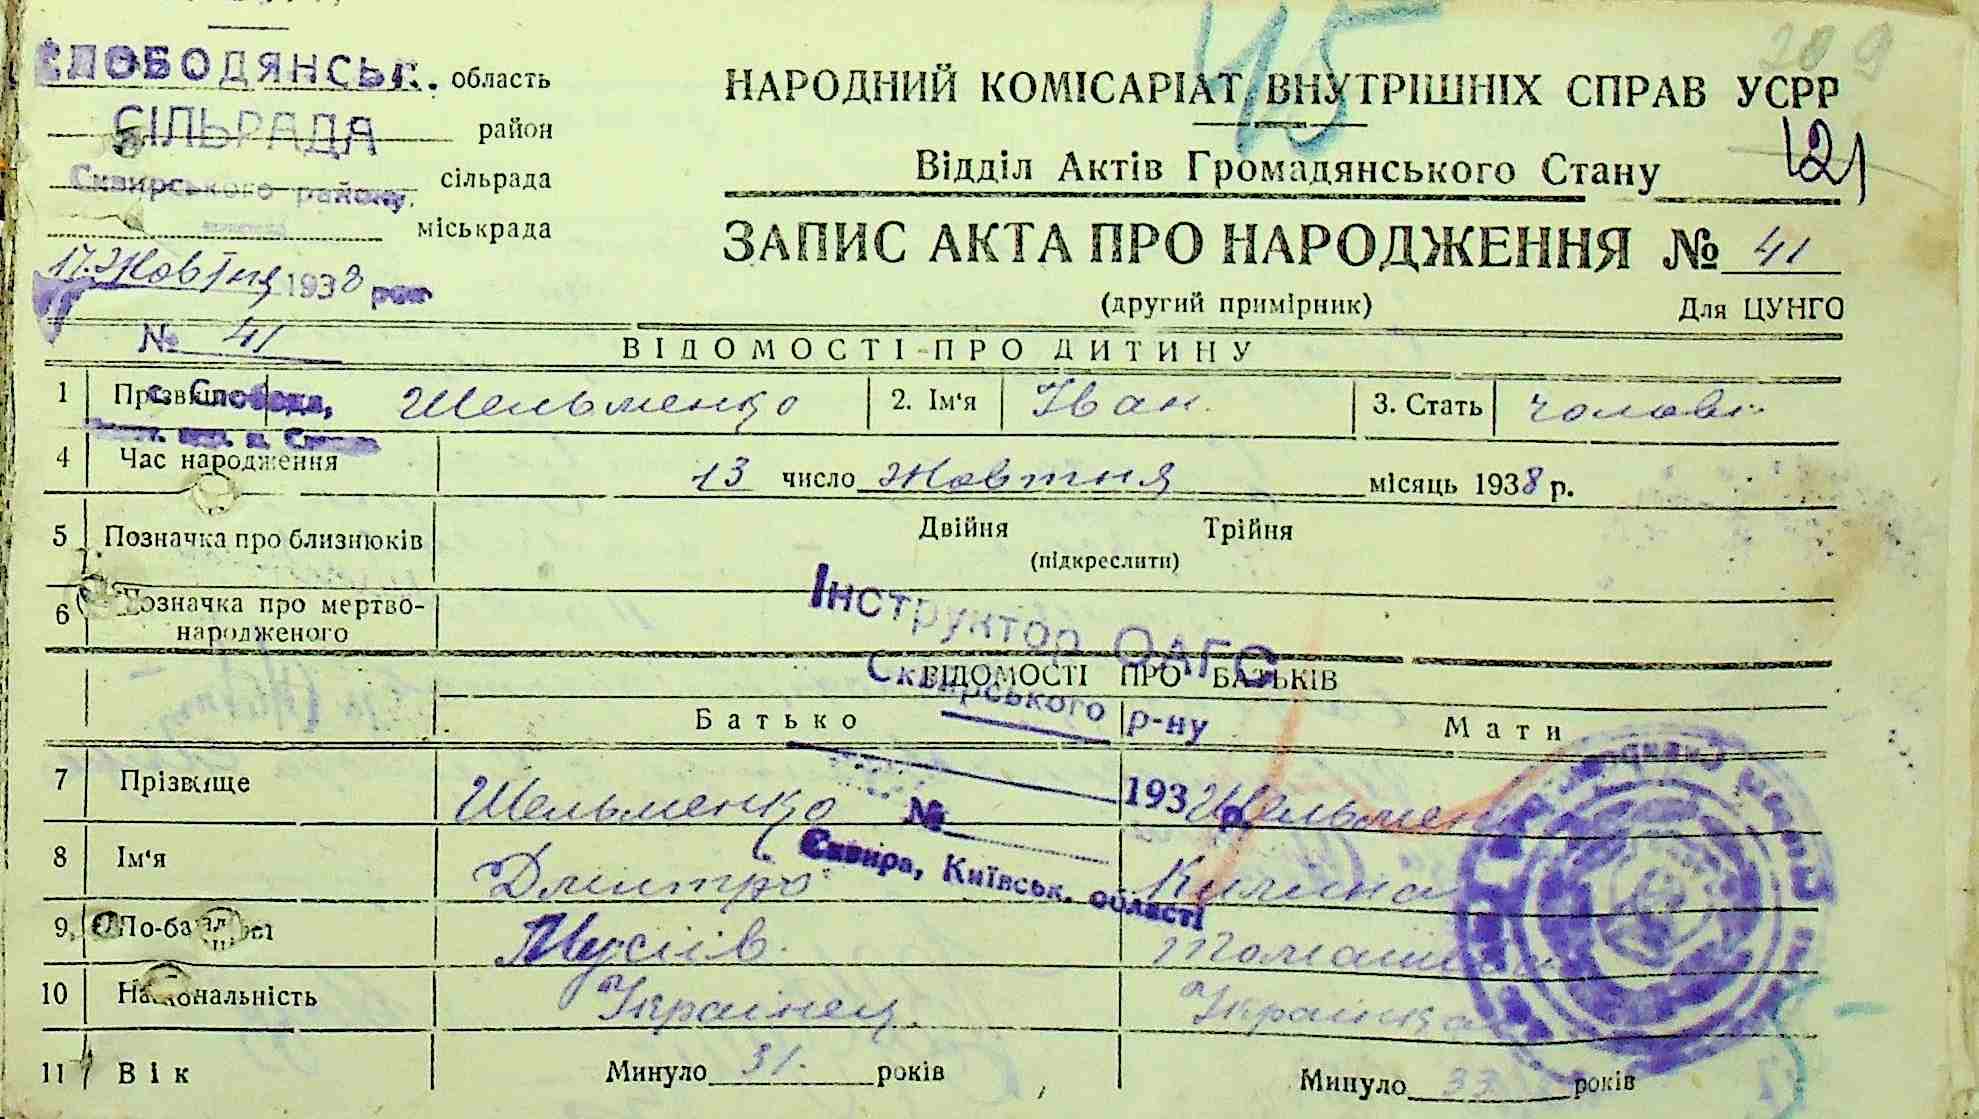 СЛОБОДЯНСЬК. область
СІЛЬРАДА район
Сквирського району сільрада
міськрада
17. Жовтня 1938 рок
№ 41
45
209
НАРОДНИЙ КОМІСАРІАТ ВНУТРІШНІХ СПРАВ УСРР
121
Відділ Актів Громадянського Стану
ЗАПИС АКТА ПРО НАРОДЖЕННЯ № 41
(другий примірник) Для ЦУНГО
ВІДОМОСТІ ПРО ДИТИНУ
1 Прізвище Шельменко 2. Ім'я Іван 3. Стать чолові
с. Слобода,
4 Час народження 13 число Жовтня місяць 1938 р.
5 Позначка про близнюків Двійня Трійня
(підкреслити)
6 Позначка про мертво-
народженого
Інструктор ОАГС
Сквирського р-ну
193 р.
№
Сквира, Київськ. області
ВІДОМОСТІ ПРО БАТЬКІВ
Батько Мати
7 Прізвище Шельменко Шельмен
8 Ім'я Дмитро Килина
9. По-батькові Мусіїв.
10 Національність Українец Українка
11 Вік Минуло 31. років Минуло 33 років